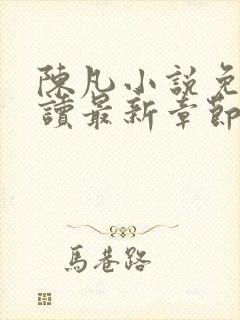 陳凡小說免
讀最新章節
馬巷路